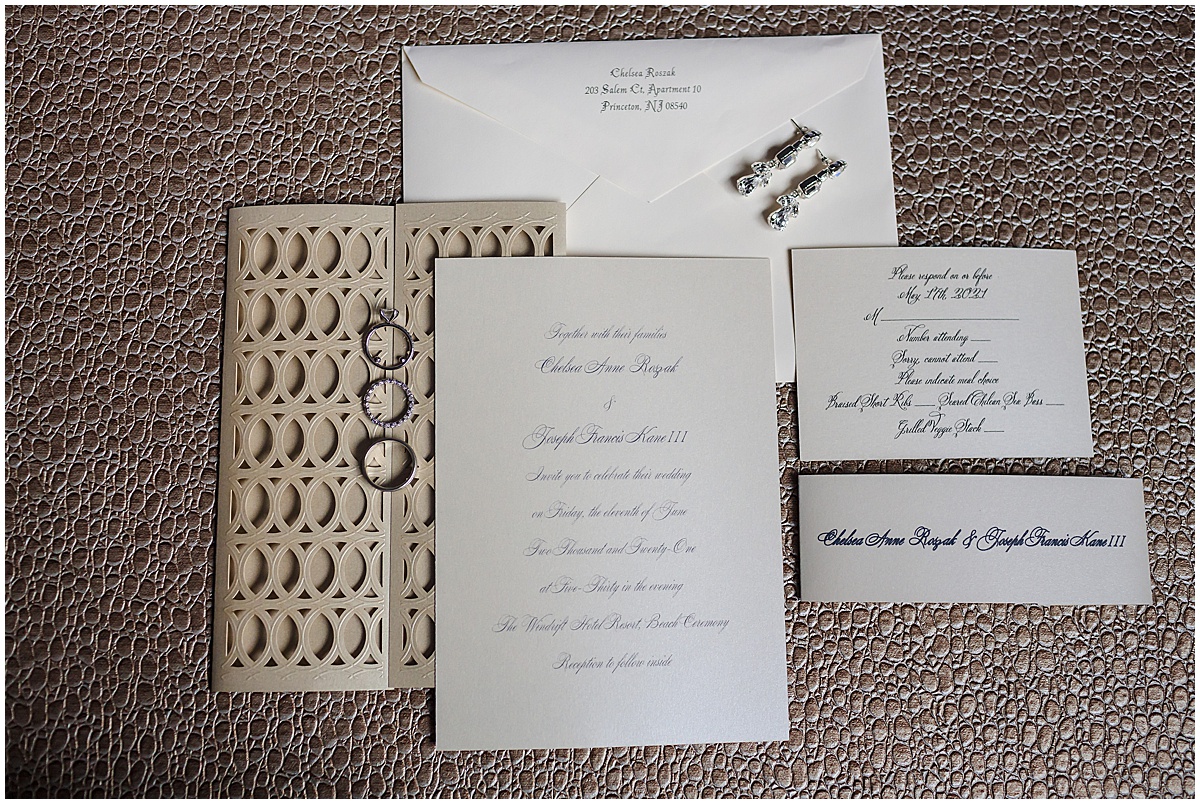 Chelsea Roszak
203 Salem Ct, Apartment 10
Princeton, NJ 08540
Together with their families
Chelsea Anne Roszak
&
Joseph Francis Kane III
Invite you to celebrate their wedding
on Friday, the eleventh of June
Two Thousand and Twenty-One
at Five-Thirty in the evening
The Windrift Hotel Resort, Beach Ceremony
Reception to follow inside
Please respond on or before
May, 17th, 2021
M
Number attending
Sorry, cannot attend
Please indicate meal choice
Braised Short Ribs Seared Chilean Sea Bass
Grilled Veggie Stack
Chelsea Anne Roszak & Joseph Francis Kane III